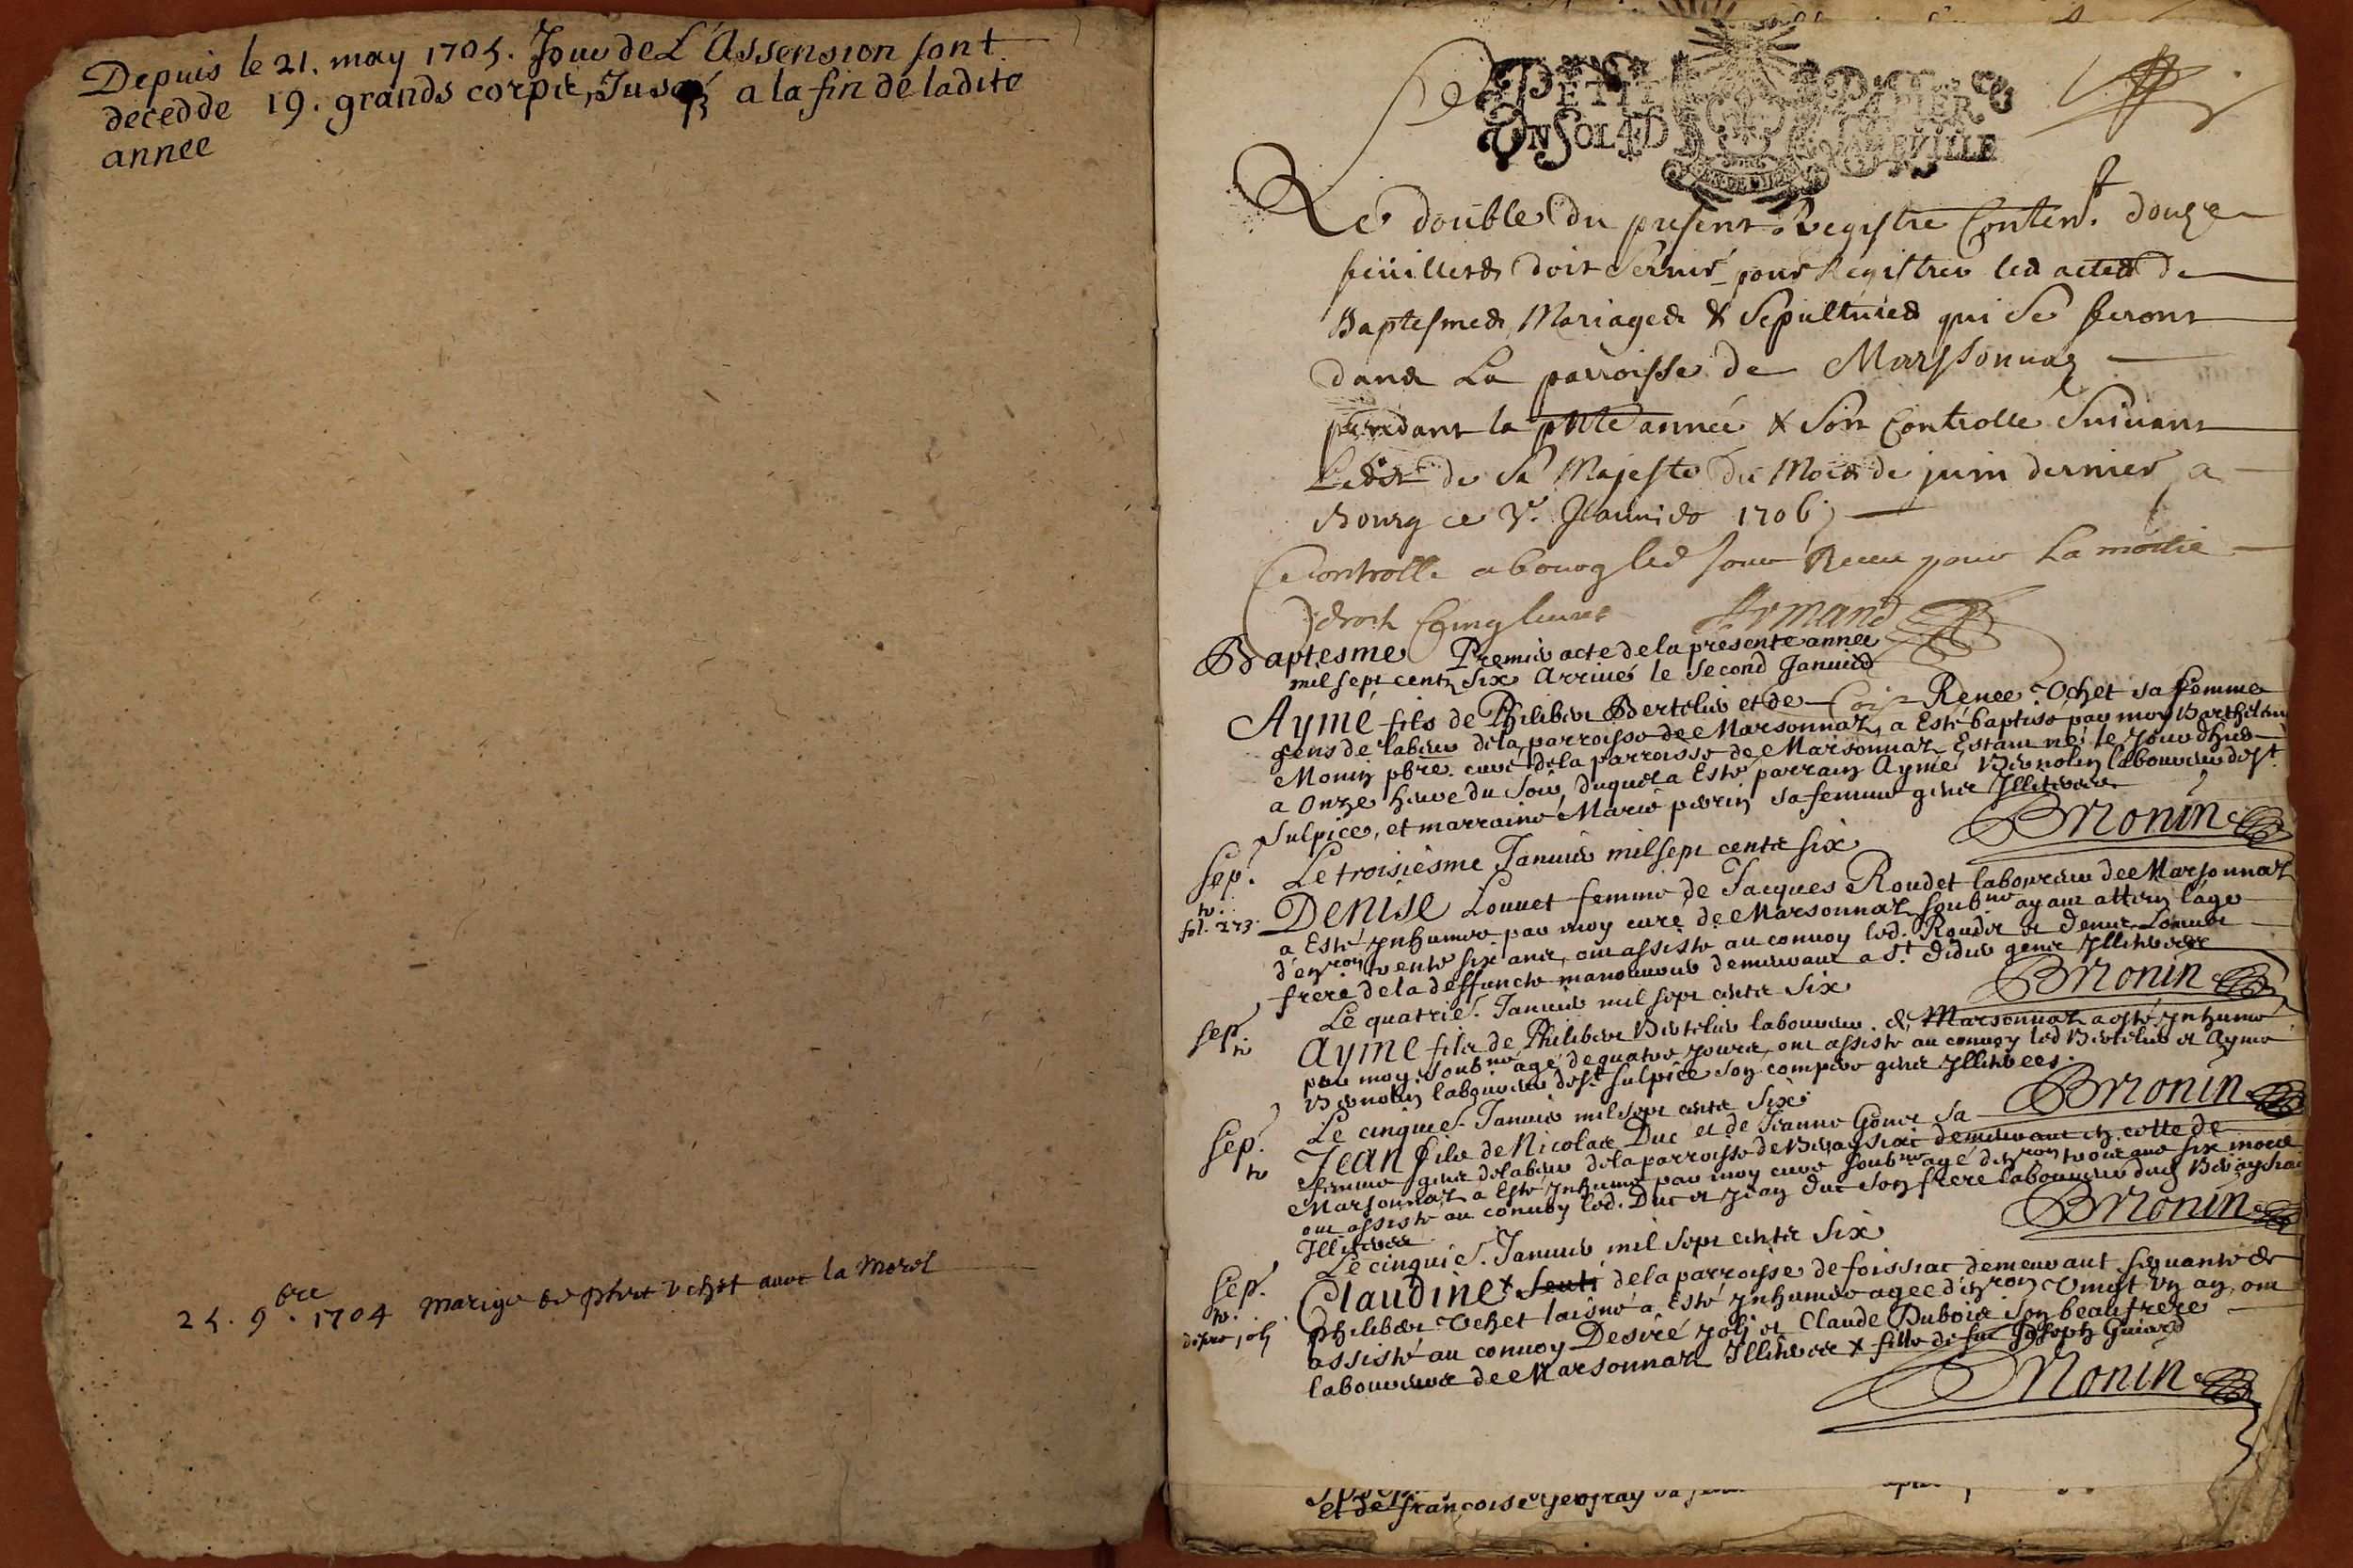 Depuis le 21. may 1705. Jour de L'Assension sont
decedde 19. grands corps, Jusq a la fin de ladite
annee
25. 9bre. 1704 mariage de phert Vchet avec la Morel
PETIT PAPIER
UN SOL 4 D LA FEUILLE
Le double du present Registre Conten.t douze
feuillets doit servir pour Registrer les actes de
Baptesmes Mariages & Sepultures qui se feront
dans La parroisse de Marssonnaz
pendant la pnte année & Son Controlle Suivant
Ledit de Sa Majesté du Mois de juin dernier a
Bourg ce 3e. Janvier 1706
Controllé a bourg led Jour Receu pour La moitie
droit Cinq livres Armand
Baptesme Premier acte de la presente année
mil sept cents Six Arrivé le Second Janvier
Aymé fils de Philibert Bertelier et de Renee Vchet sa femme
gens de labeur de la parroisse de Marsonnaz, a Esté baptisé par moy Barthelemy
Monin pbre. curé de la parroisse de Marsonnaz Estant né le Jour d'hier
a Onze heure du Soir, duquel a Esté parrain Aymé Bernolin laboureur de St.
Sulpice, et marraine Marie perrin sa femme gens Illiteres
BMonin
Sep. Le troisiesme Janvier mil sept cents six
fol. 273. Denise Louvet femme de Jacques Roudet laboureur de Marsonnaz
a Esté ynhumee par moy curé de Marsonnaz soubné ayant attein l'age
d'environ trente six ans, ont assisté au convoy led. Roudet et Denis Louvet
frere de la deffuncte manouvrier demeurant a St. Didier gens ylliteres
BMonin
Sep. Le quatrie. Janvier mil sept cents Six
Aymé fils de Philibert Bertelier laboureur de Marsonnaz a esté ynhumé
par moy Soubné agé de quatre Jours, ont assisté au convoy led Bertelier et Aymé
Bernolin laboureur de St. Sulpice son compere gens yllitérées.
BMonin
Sep. Le cinquie. Janvier mil sept cents Six
Jean fils de Nicolas Duc et de Jeanne Goner Sa
femme gens de labeur de la parroisse de Bereyssiat demeurant en cette de
Marsonnaz a Esté ynhumé par moy curé soubné agé d'environ trois ans six mois
ont assisté au convoy led. Duc et Jean Duc son frere laboureur dud Bereyssiat
Illiteres
BMonin
Sep. Le cinquie. Janvier mil sept cents Six
Claudine x de la parroisse de foissiat demeurant servante de
philibert Vchet laisné a Esté ynhumee agee d'environ Vingt un an, ont
assisté au convoy Desiré Joly et Claude Dubois son beaufrere
laboureurs de Marsonnaz Illiteres x fille de feu Joseph Guiard
BMonin
Et de françoise